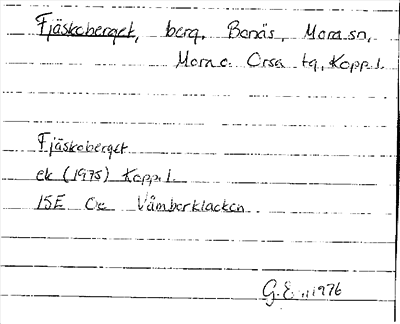 Fjäskoberget, berg, Bonäs, Mora sn,
Mora o. Orsa tg, Kopp. l.
Fjäskoberget
ek (1975) Kopp. l.
15E Våmberklacken
G.E. 1976